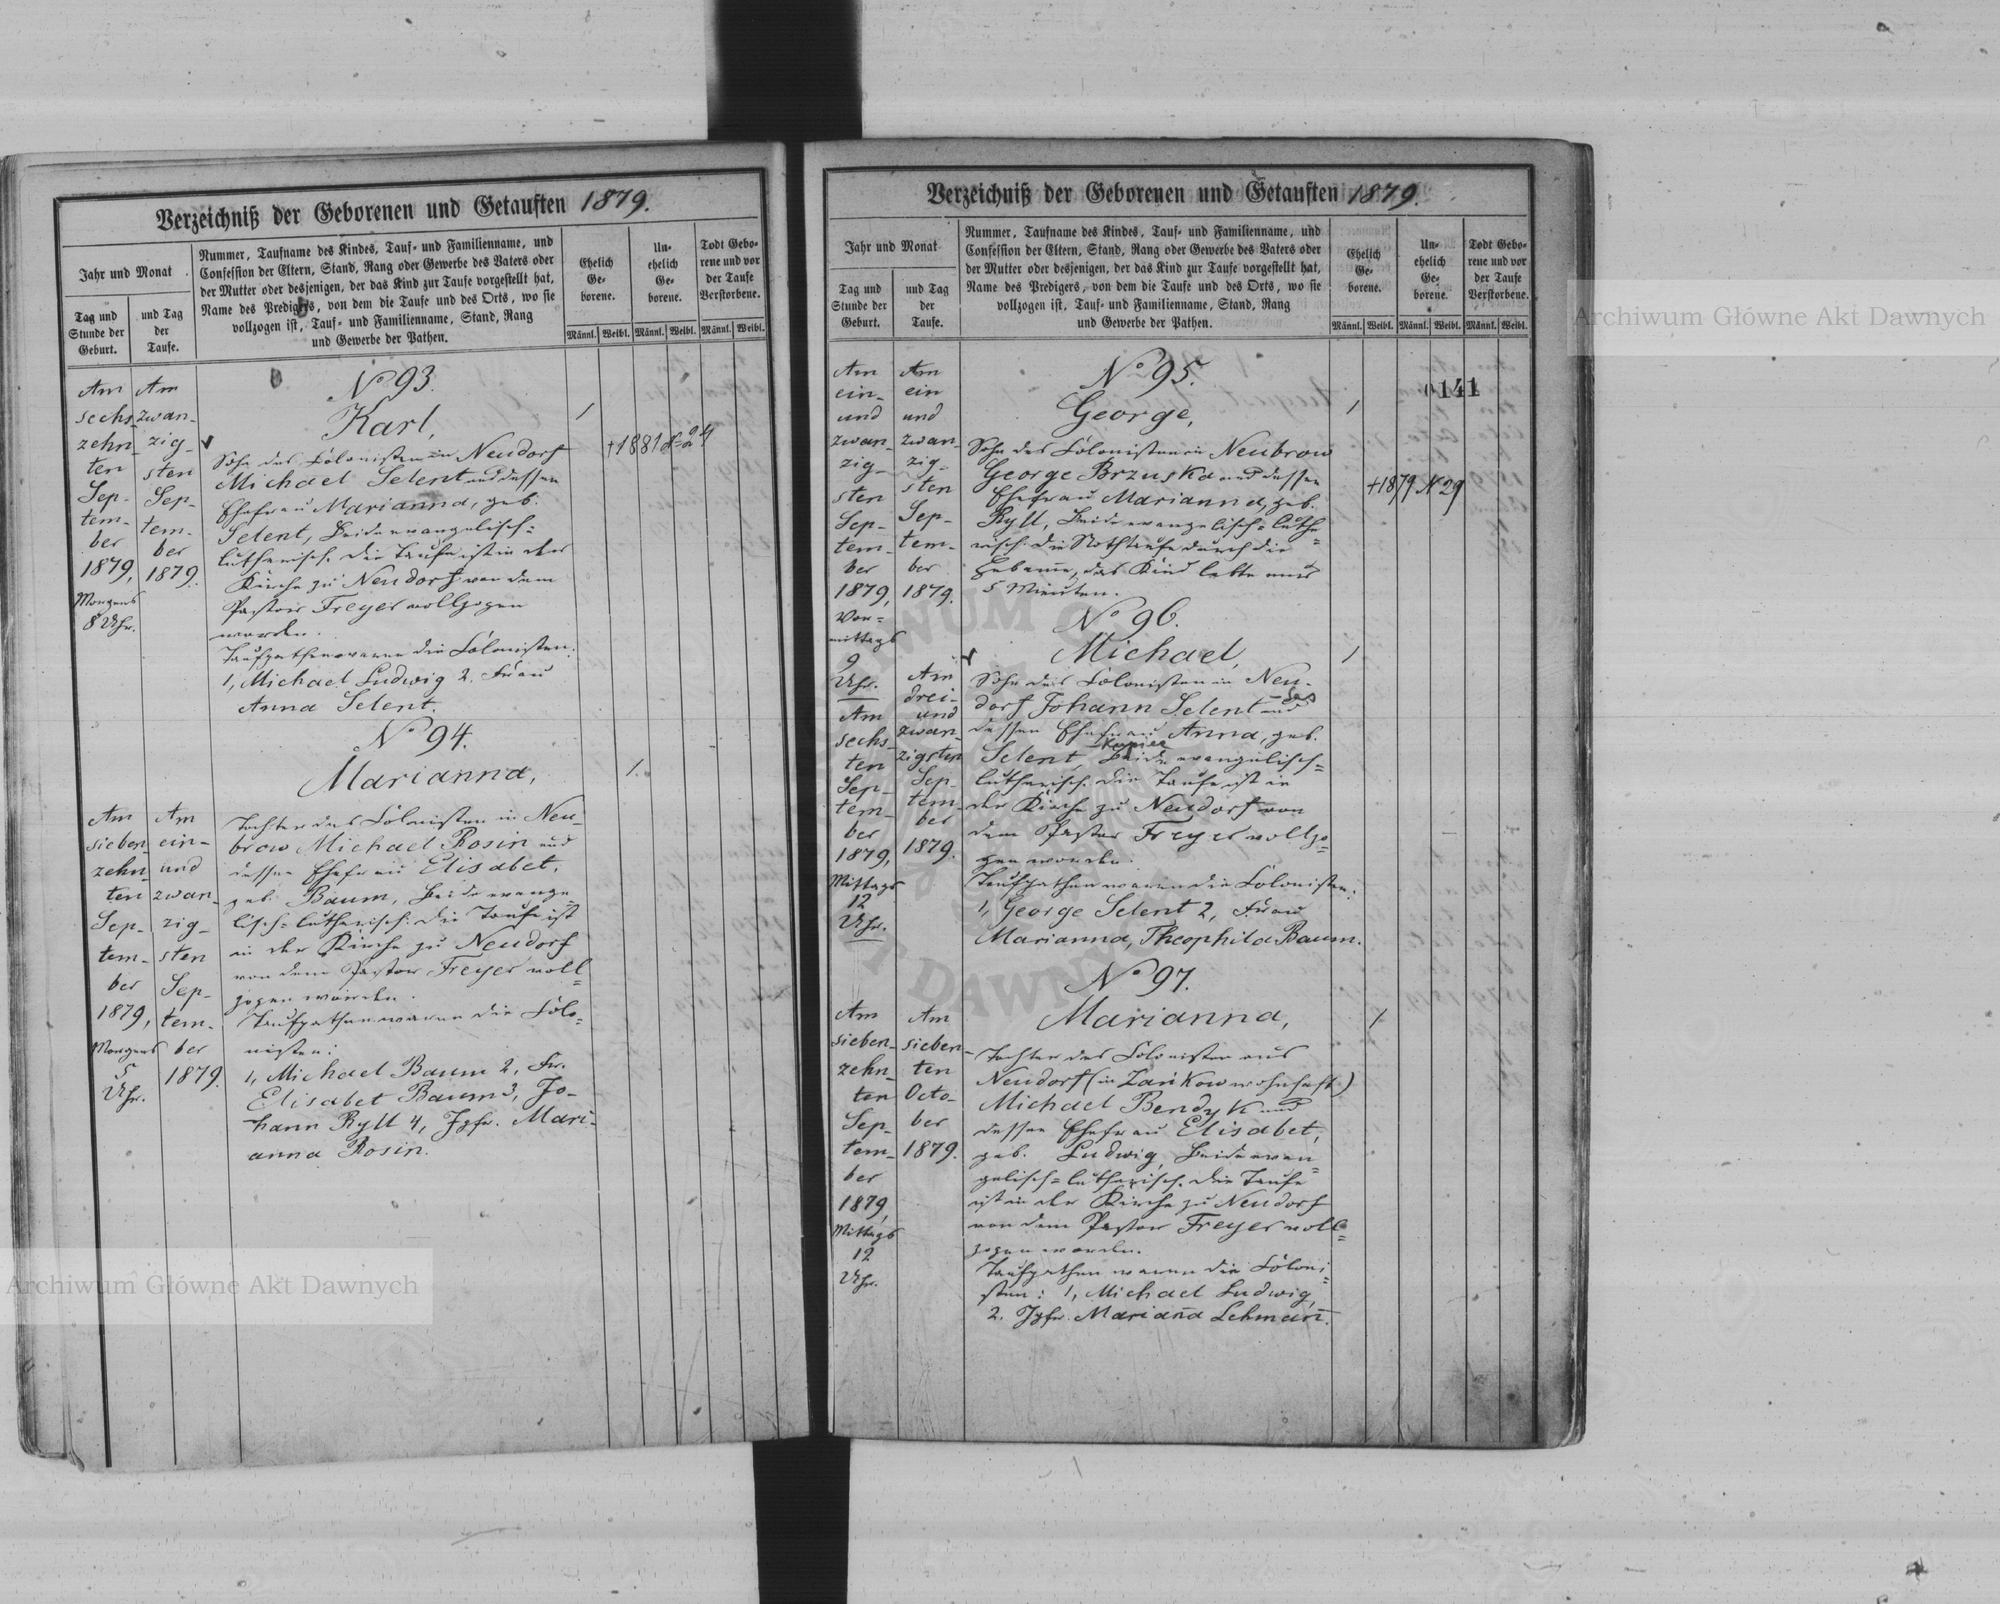 Verzeichniß der Geborenen und Getauften 1879.
Jahr und Monat
Tag und
Stunde der
Geburt.
und Tag
der
Taufe.
Nummer, Taufname des Kindes, Tauf- und Familienname, und
Confession der Eltern, Stand, Rang oder Gewerbe des Vaters oder
der Mutter oder desjenigen, der das Kind zur Taufe vorgestellt hat,
Name des Predigers, von dem die Taufe und des Orts, wo sie
vollzogen ist, Tauf- und Familienname, Stand, Rang
und Gewerbe der Pathen.
Ehelich
Ge-
borene.
Un-
ehelich
Ge-
borene.
Todt Gebo-
rene und vor
der Taufe
Verstorbene.
Männl. Weibl. Männl. Weibl. Männl. Weibl.
Am
sechs-
zehn-
ten
Sep-
tem-
ber
1879,
Morgens
8 Uhr.
Am
zwan-
zig-
sten
Sep-
tem-
ber
1879.
No 93.
Karl,
Sohn des Colonisten in Neudorf
Michael Selent und dessen
Ehefrau Marianna, geb.
Selent, Beide evangelisch-
lutherisch. Die Taufe ist in der
Kirche zu Neudorf von dem
Pastor Freyer vollzogen
worden.
Taufpathen waren die Colonisten:
1, Michael Ludwig 2. Frau
Anna Selent.
1
+1881 N 24
No 94.
Marianna,
1.
Am
sieben-
zehn-
ten
Sep-
tem-
ber
1879,
Morgens
5
Uhr.
Am
ein-
und
zwan-
zig-
sten
Sep-
tem-
ber
1879.
Tochter des Colonisten in Neu-
brow Michael Rosin und
dessen Ehefrau Elisabet,
geb. Baum, Beide evange-
lisch-lutherisch. Die Taufe ist
in der Kirche zu Neudorf
von dem Pastor Freyer voll-
zogen worden.
Taufpathen waren die Colo-
nisten:
1, Michael Baum 2, Fr.
Elisabet Baum 3, Jo-
hann Ryll 4, Jgfr. Mari-
anna Rosin.
Verzeichniß der Geborenen und Getauften 1879.
Jahr und Monat
Tag und
Stunde der
Geburt.
und Tag
der
Taufe.
Nummer, Taufname des Kindes, Tauf- und Familienname, und
Confession der Eltern, Stand, Rang oder Gewerbe des Vaters oder
der Mutter oder desjenigen, der das Kind zur Taufe vorgestellt hat,
Name des Predigers, von dem die Taufe und des Orts, wo sie
vollzogen ist, Tauf- und Familienname, Stand, Rang
und Gewerbe der Pathen.
Ehelich
Ge-
borene.
Un-
ehelich
Ge-
borene.
Todt Gebo-
rene und vor
der Taufe
Verstorbene.
Männl. Weibl. Männl. Weibl. Männl. Weibl.
0141
Am
ein-
und
zwan-
zig-
sten
Sep-
tem-
ber
1879,
Vor-
mittags
9
Uhr.
Am
ein
und
zwan-
zig-
sten
Sep-
tem-
ber
1879.
No 95.
George,
Sohn des Colonisten in Neubrow
George Brzuska und dessen
Ehefrau Marianna, geb.
Ryll, Beide evangelisch-luthe-
risch. Die Nothtaufe durch die
Hebamme, das Kind lebte nur
5 Minuten.
1
+1879 N 29
No 96.
Michael,
1
Am
sechs-
ten
Sep-
tem-
ber
1879,
Mittags
12
Uhr.
Am
drei-
und
zwan-
zigsten
Sep-
tem-
ber
1879.
Sohn des Colonisten in Neu-
dorf Johann Selent und
dessen Ehefrau Anna, geb.
Selent, Beide evangelisch-
lutherisch. Die Taufe ist in
der Kirche zu Neudorf von
dem Pastor Freyer vollzo-
gen worden.
Taufpathen waren die Colonisten:
1, George Selent 2, Frau
Marianna, Theophila Baum.
No 97.
Marianna,
1
Am
sieben-
zehn-
ten
Sep-
tem-
ber
1879,
Mittags
12
Uhr.
Am
sieben-
ten
Octo-
ber
1879.
Tochter des Colonisten aus
Neudorf (in Zańkow wohnhaft)
Michael Bendyk und
dessen Ehefrau Elisabet,
geb. Ludwig, Beide evan-
gelisch-lutherisch. Die Taufe
ist in der Kirche zu Neudorf
von dem Pastor Freyer voll-
zogen worden.
Taufpathen waren die Coloni-
sten: 1, Michael Ludwig,
2. Jgfr. Mariana Lehman.
Archiwum Główne Akt Dawnych
Archiwum Główne Akt Dawnych